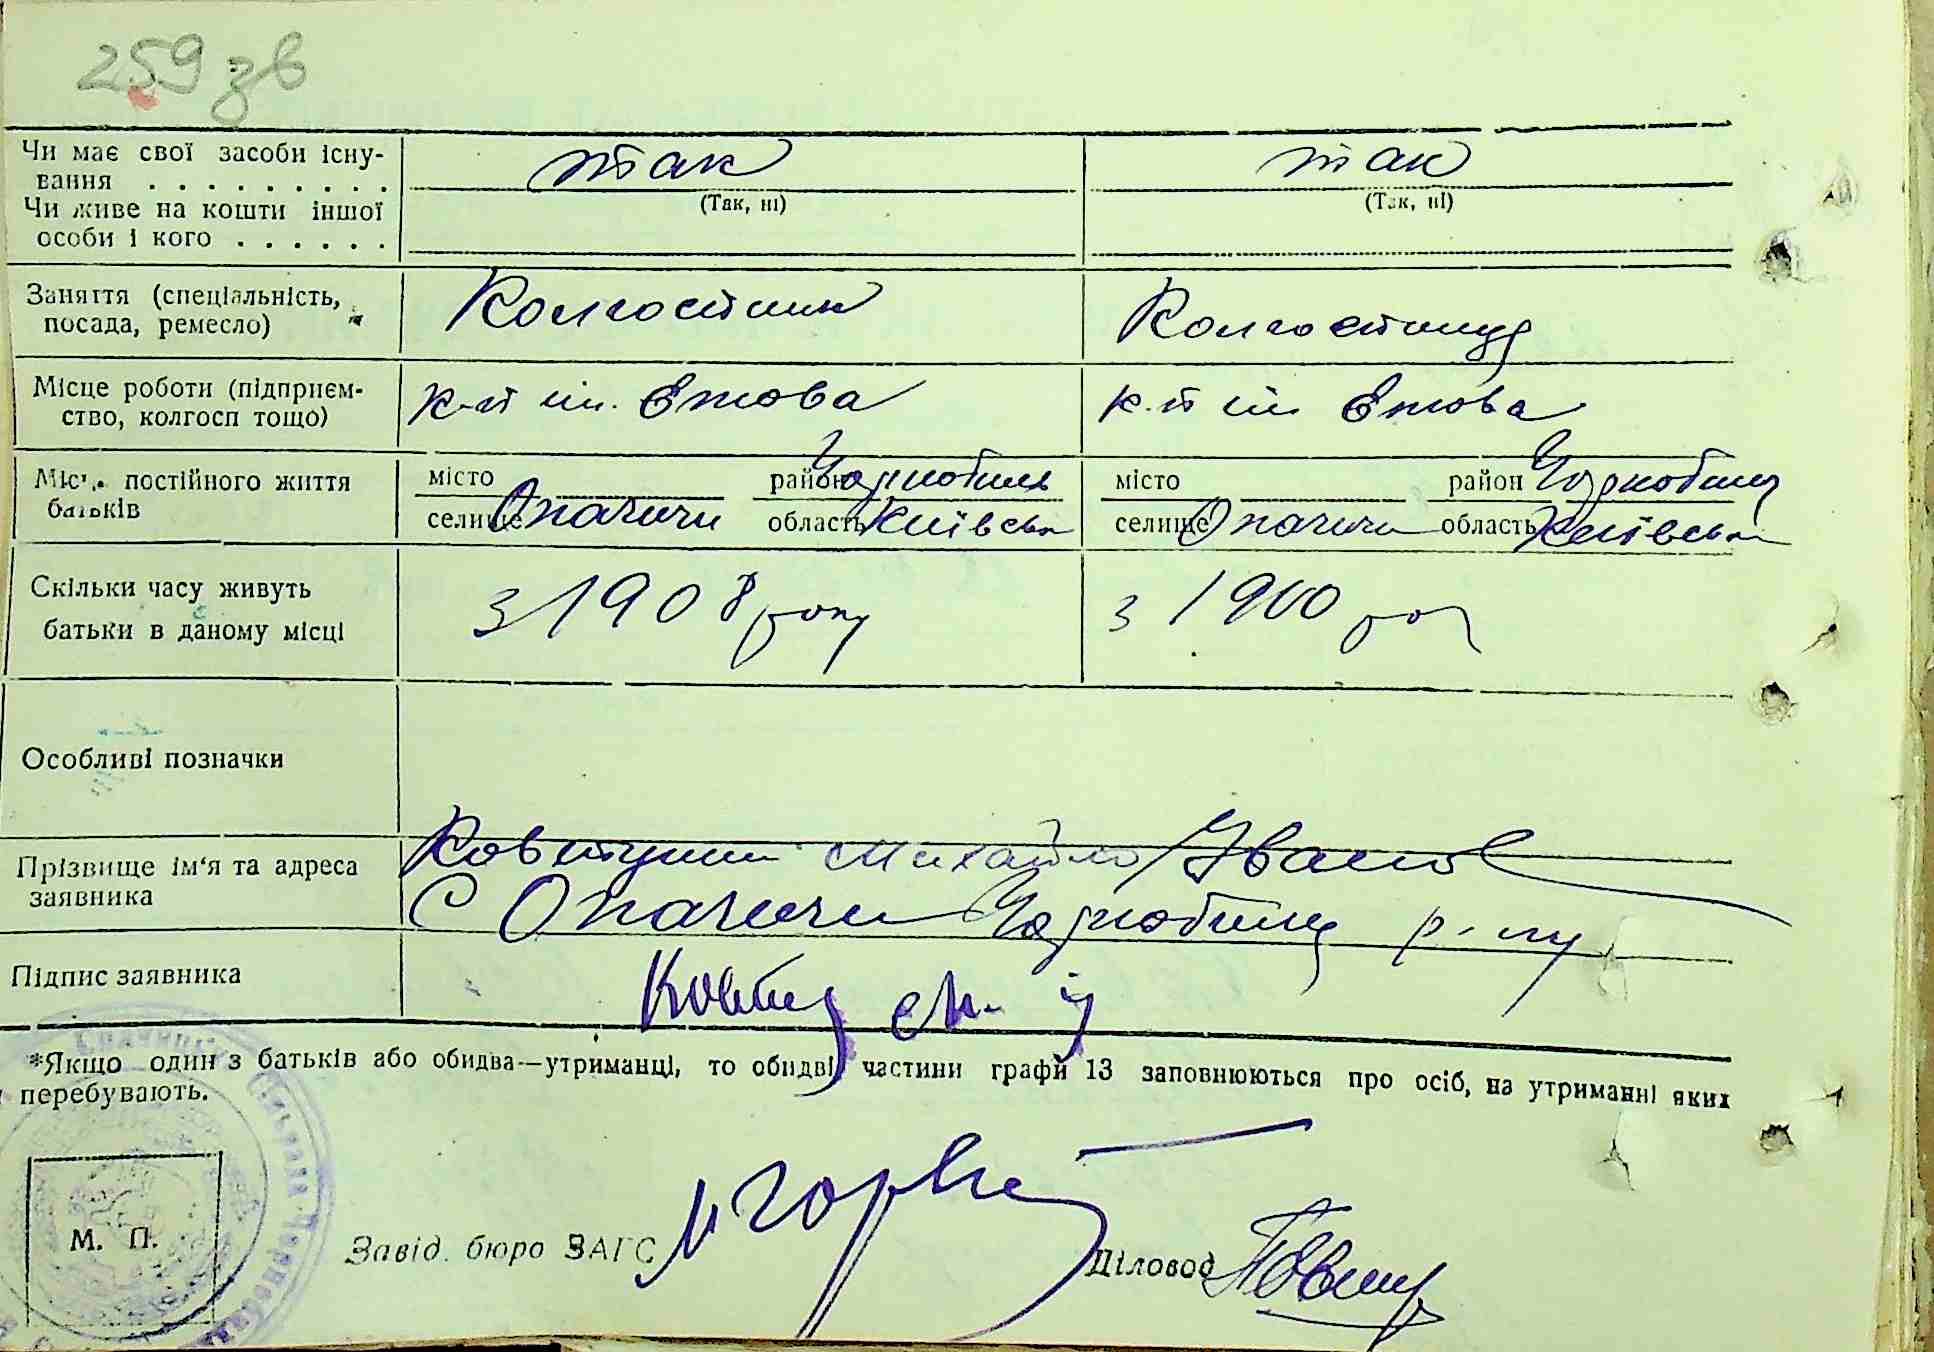 259 зв
Чи має свої засоби існу-
вання . . . . . . . . . так так
(Так, ні) (Так, ні)
Чи живе на кошти іншої
особи і кого . . . . . .
Заняття (спеціальність,
посада, ремесло) Колгоспник Колгоспниця
Місце роботи (підприєм-
ство, колгосп тощо) к-п ім. Єжова к-п ім Єжова
постійного життя
батьків
місто район Чорнобиль місто район
селище Опачичи область Київська селище Опачичи область Київська
Скільки часу живуть
батьки в даному місці з 1908 року з 1900
Особливі позначки
Прізвище ім'я та адреса
заявника
Михайло Іванов
с Опачичи р-ну
Підпис заявника
*Якщо один з батьків або обидва—утриманці, то обидві частини графи 13 заповнюються про осіб, на утриманні яких
перебувають.
М. П.
Завід. бюро ЗАГС Діловод